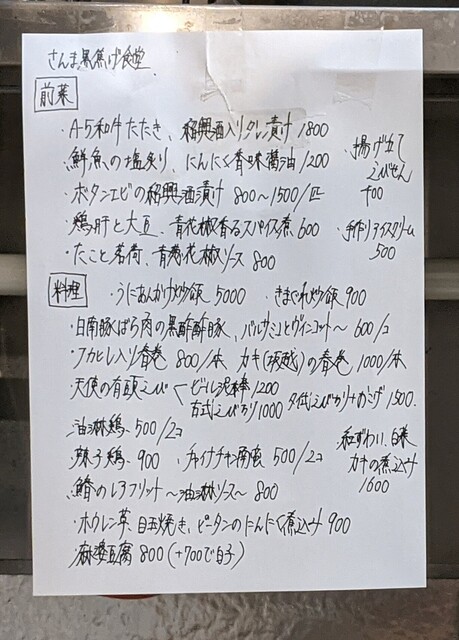 さんま黒焦げ食堂
前菜
・A-5和牛たたき、紹興酒入りタレ漬け 1800
・鮮魚の塩炙り、にんにく香味醤油 1200
・揚げ立てえびせん
400
・ボタンエビの紹興酒漬け 800〜1500/匹
・鶏肝と大豆、青花椒香るスパイス煮 600
・手作りアイスクリーム
500
・たこと茗荷、青葱花椒ソース 800
料理
・うにあんかけ炒飯 5000
・きまぐれ炒飯 900
・日南豚ばら肉の黒酢酢豚、バルサミコとヴィンコット〜 600/コ
・フカヒレ入り春巻 800/本
カキ(坂越)の春巻 1000/本
・天使の有頭えび
ビール泥棒 1200
古式えびチリ 1000
1500
油淋鶏 500/2コ
・辣子鶏 900
チャイナチキン南蛮 500/2コ
紅ずわい、白菜
カキの煮込み
1600
・鯵のレアフリット〜油淋ソース〜 800
・ホウレン草、目玉焼き、ピータンのにんにく煮込み 900
・麻婆豆腐 800(+700で白子)